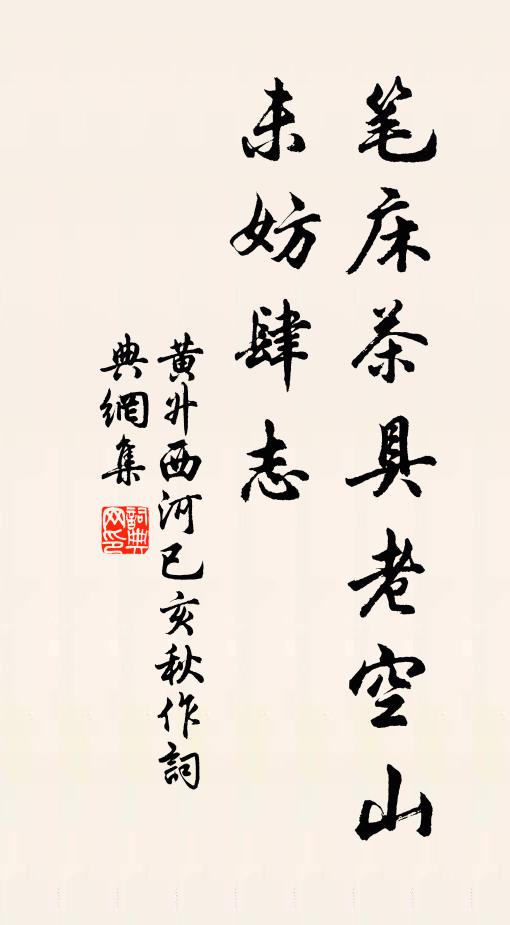 笔床茶具老空山
未妨肆志
黄升西河已亥秋作詞
典網集
詞典
网印